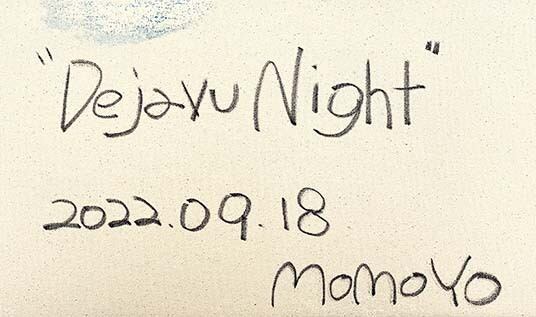 "Dejavu Night"
2022.09.18
MOMOYO